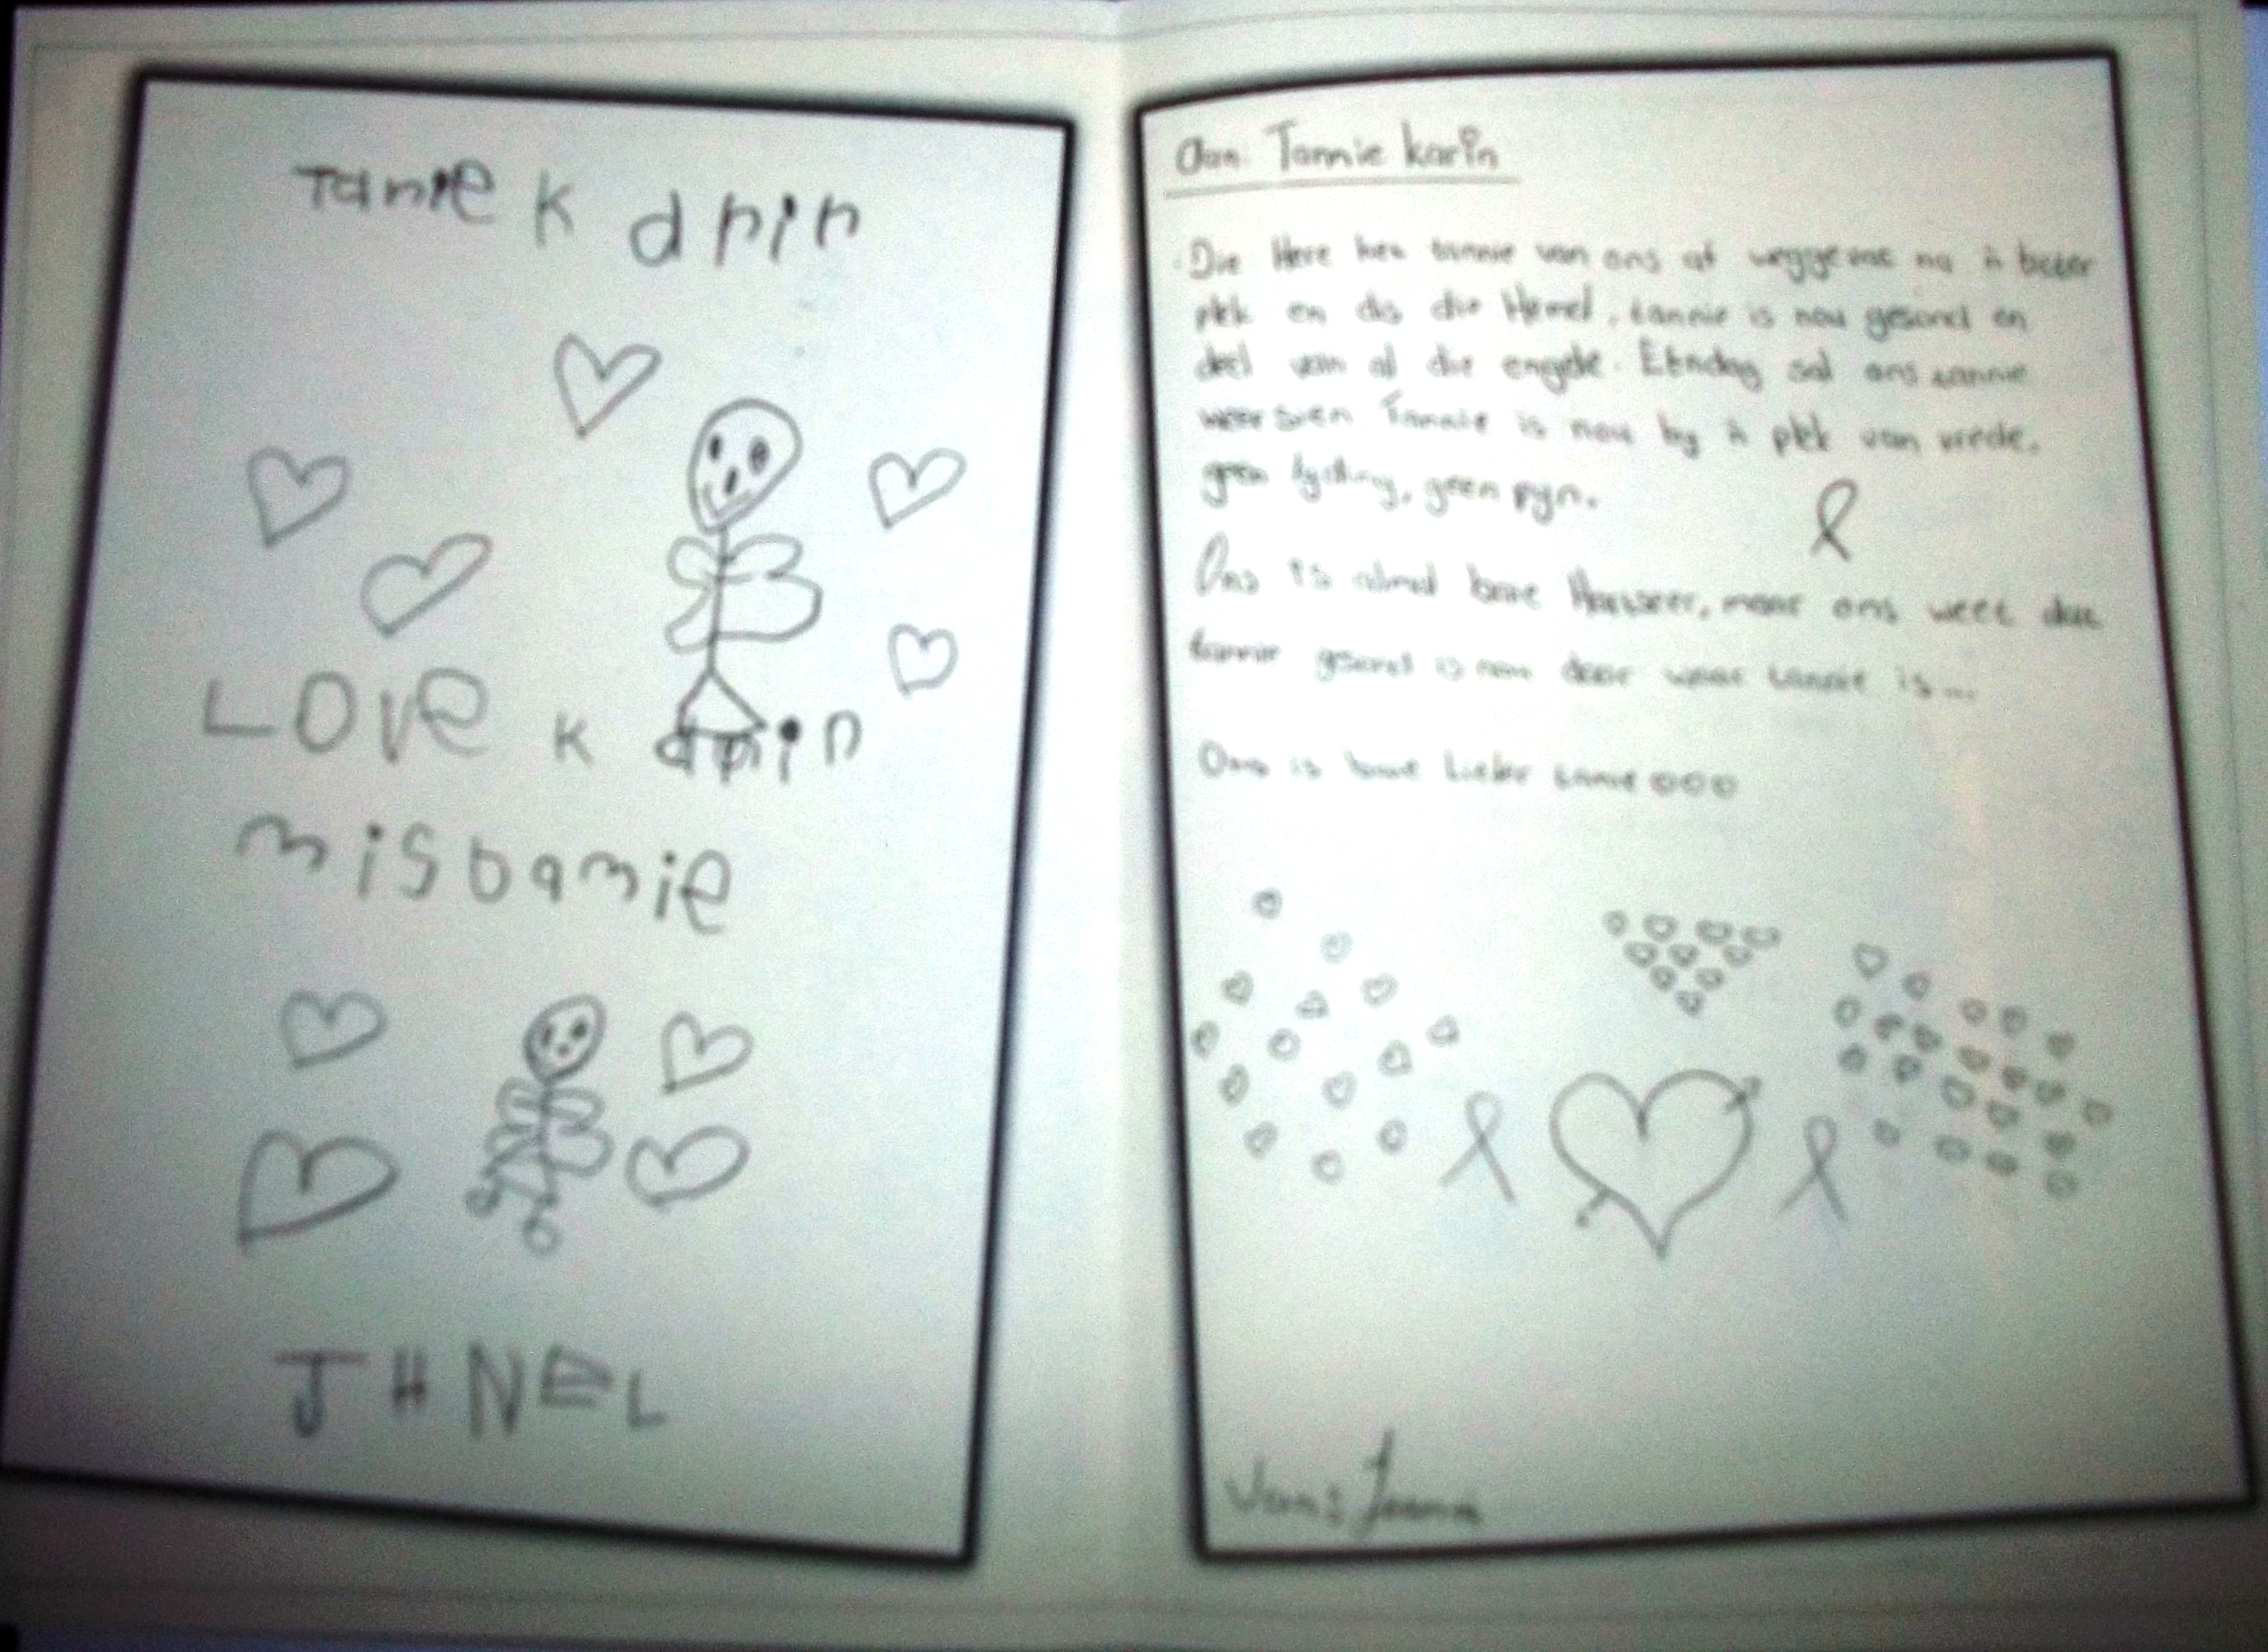 Tanie Karin
LOVE Karin
mis tamie
JHNEL
Aan: Tannie Karin
Die Here het tannie van ons af weggeme na 'n beter
plek en dis die Hemel, tannie is nou gesond en
deel van al die engele. Eendag sal ons tannie
weer sien Tannie is nou by 'n plek van vrede.
geen lyding, geen pyn.
Ons is almal baie Hartseer, maar ons weet dat
tannie gesond is nou daar waar tannie is...
Ons is baie Lief vir tannie
Van: